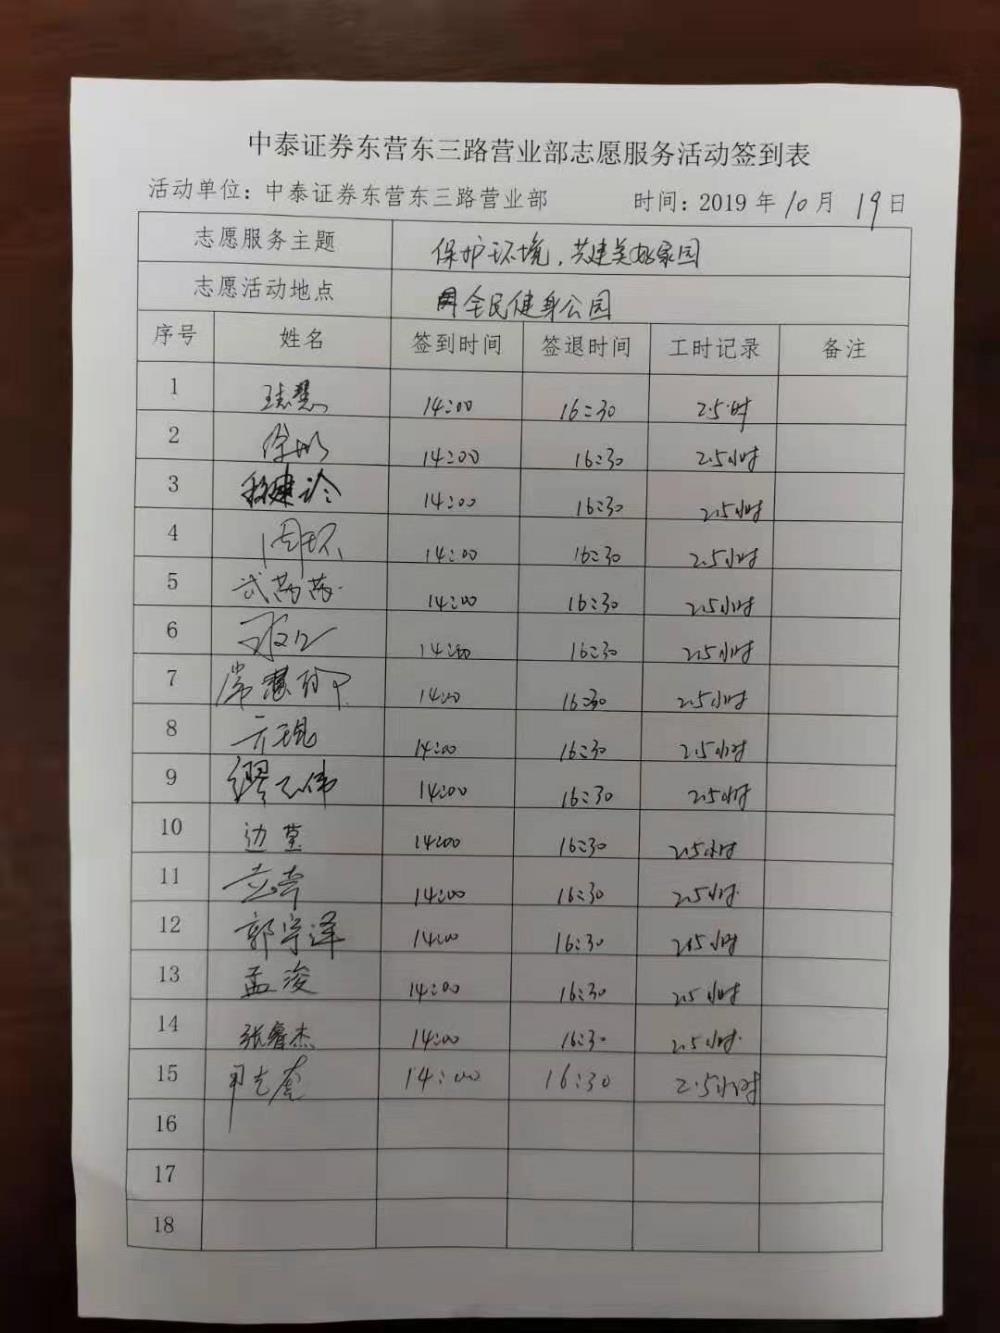 中泰证券东营东三路营业部志愿服务活动签到表
活动单位：中泰证券东营东三路营业部 时间：2019 年 10 月 19 日
志愿服务主题 保护环境，共建美好家园
志愿活动地点 全民健身公园
序号 姓名 签到时间 签退时间 工时记录 备注
1 14:00 16:30 2.5时
2 14:00 16:30 2.5小时
3 14:00 16:30 2.5小时
4 周环 14:00 16:30 2.5小时
5 武茜茜 14:00 16:30 2.5小时
6 14:00 16:30 2.5小时
7 常慧 14:00 16:30 2.5小时
8 亓琨 14:00 16:30 2.5小时
9 缪志伟 14:00 16:30 2.5小时
10 边莹 14:00 16:30 2.5小时
11 14:00 16:30 2.5小时
12 郭宇泽 14:00 16:30 2.5小时
13 孟浚 14:00 16:30 2.5小时
14 张睿杰 14:00 16:30 2.5小时
15 14:00 16:30 2.5小时
16
17
18